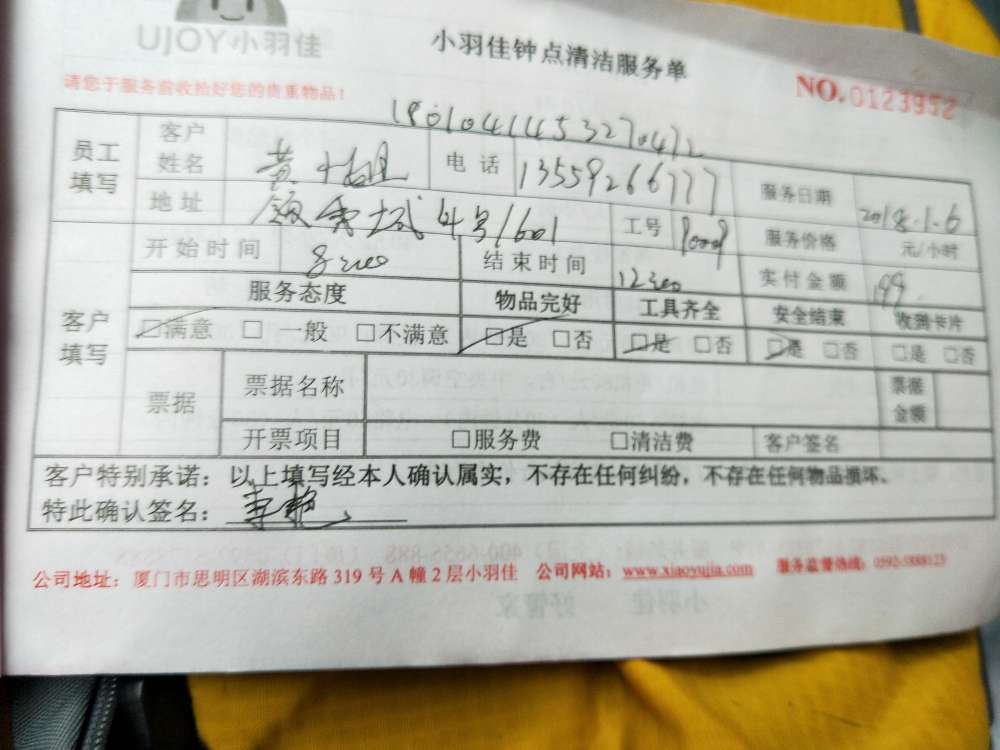 UJOY小羽佳
小羽佳钟点清洁服务单
请您于服务前收拾好您的贵重物品！
NO.0123952
180104145327047
员工填写
客户姓名 黄小姐 电话 13559266777 服务日期 2018.1.6
地址 4号1601 工号 服务价格 元/小时
客户填写
开始时间 结束时间 实付金额 199
服务态度 物品完好 工具齐全 安全结束 收到卡片
□满意 □一般 □不满意 □是 □否 □是 □否 □是 □否 □是 □否
票据 票据名称 票据金额
开票项目 □服务费 □清洁费 客户签名
客户特别承诺：以上填写经本人确认属实，不存在任何纠纷，不存在任何物品损坏。
特此确认签名：李艳
公司地址：厦门市思明区湖滨东路 319 号 A 幢 2 层小羽佳 公司网站：www.xiaoyujia.com 服务监督热线：